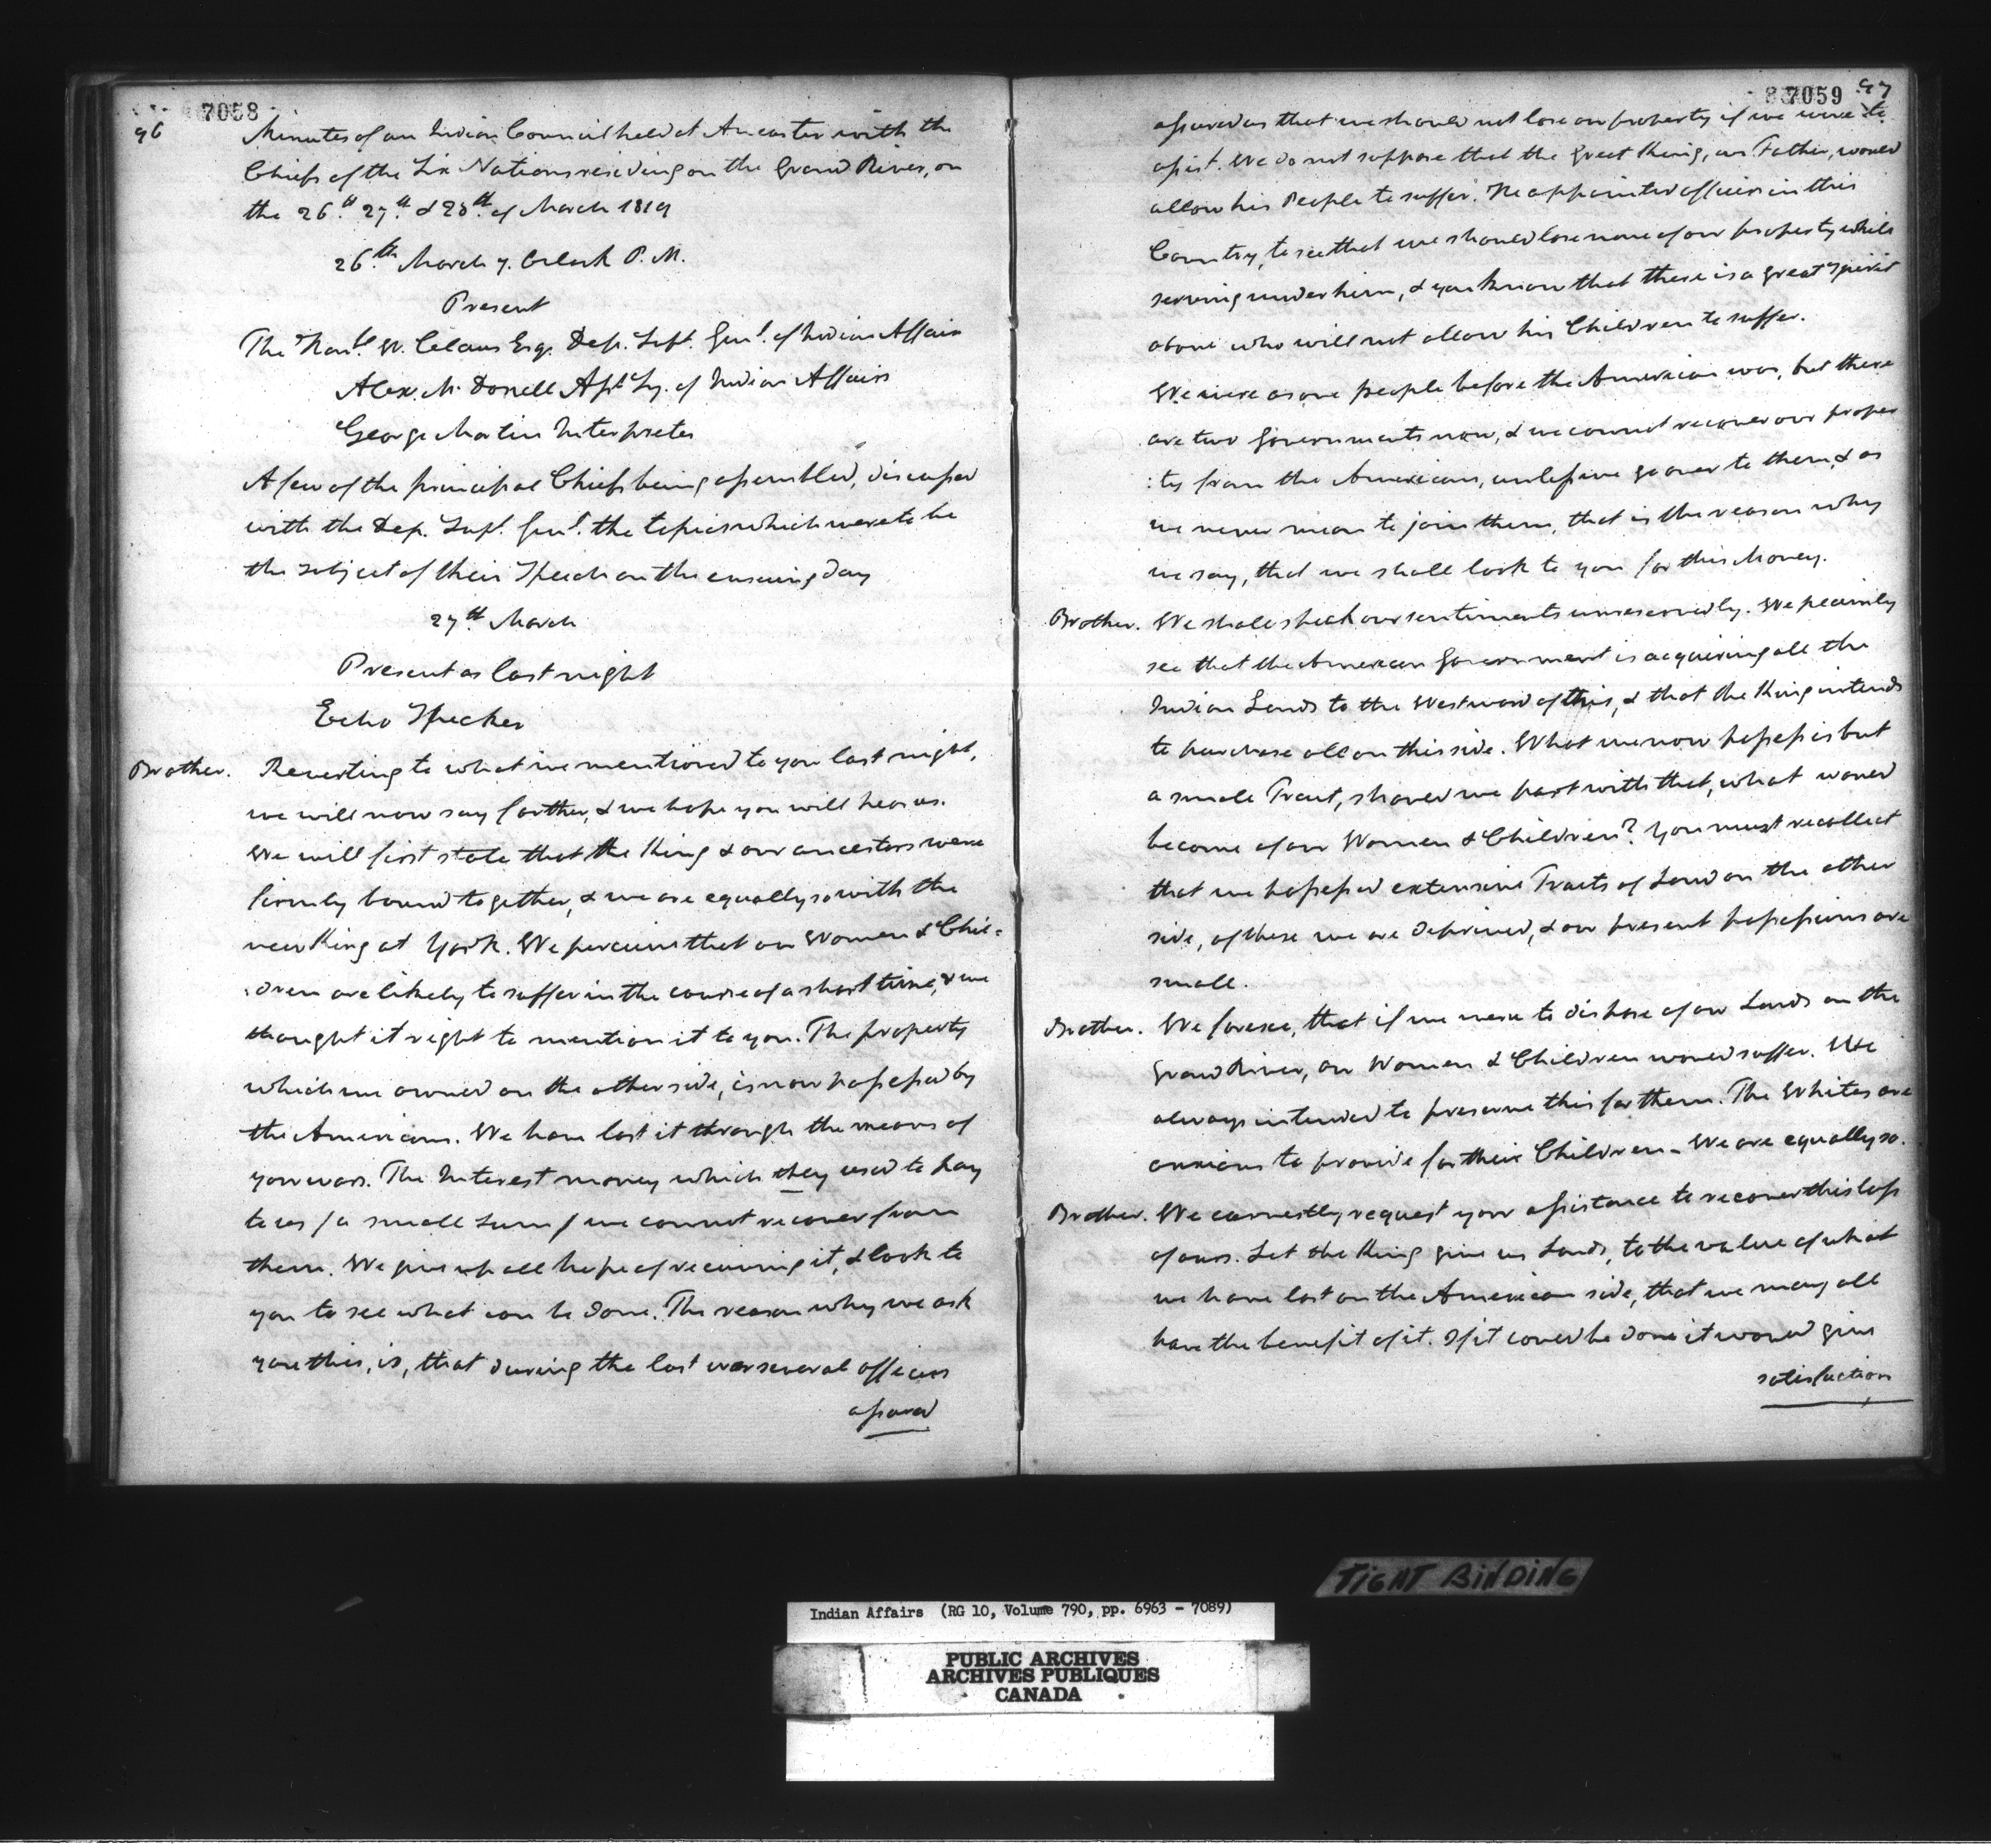 7058
96
Minutes of an Indian Council held at Ancaster with the
Chiefs of the Six Nations residing on the Grand River, on
the 26th 27th & 28th of March 1819
26th March 7. Oclock P.M.
Present
The Honl. W. Claus Esq. Dep. Supt. Genl. of Indian Affairs
Alex. McDonell Asst. Sy. of Indian Affairs
George Martin Interpreter
A few of the principal Chiefs being assembled, discussed
with the Dep. Supt. Genl. the topics which were to be
the subject of their Speech on the ensuing day
27th March
Present as last night
Echo Speaker
Brother. Reverting to what we mentioned to you last night,
we will now say farther, & we hope you will hear us.
We will first state that the King & our ancestors were
firmly bound together, & we are equally so with the
new King at York. We perceive that our Women & Chil=
:dren are likely to suffer in the course of a short time, & we
thought it right to mention it to you. The property
which we owned on the other side, is now possessed by
the Americans. We have lost it through the means of
your wars. The Interest money which they used to pay
to us / a small sum / we cannot recover from
them. We give up all hope of receiving it, & look to
you to see what can be done. The reason why we ask
you this, is, that during the last war several officers
assured
87059 97
assured us that we should not lose our property if we were to
assist. We do not suppose that the great King, our Father, would
allow his People to suffer. He appointed officers in this
Country, to see that we should lose none of our property while
serving under him, & you know that there is a great Spirit
above who will not allow his Children to suffer.
We were as one people before the American war, but there
are two Governments now, & we cannot recover our proper
:ty from the Americans, unless we go over to them, & as
we never mean to join them, that is the reason why
we say, that we shall look to you for this Money.
Brother. We shall speak our sentiments unreservedly. We plainly
see that the American Government is acquiring all the
Indian Lands to the Westward of this, & that the King intends
to purchase all on this side. What we now possess is but
a small Tract, should we part with that, what would
become of our Women & Children? You must recollect
that we possessed extensive Tracts of Land on the other
side, of these we are deprived, & our present possessions are
small.
Brother. We foresee, that if we were to dispose of our Lands on the
Grand River, our Women & Children would suffer. We
always intended to preserve this for them. The Whites are
anxious to provide for their Children - We are equally so.
Brother. We earnestly request your assistance to recover this loss
of ours. Let the King give us Lands, to the value of what
we have lost on the American side, that we may all
have the benefit of it. If it could be done it would give
satisfaction
TIGHT BINDING
Indian Affairs (RG 10, Volume 790, pp. 6963 - 7089)
PUBLIC ARCHIVES
ARCHIVES PUBLIQUES
CANADA